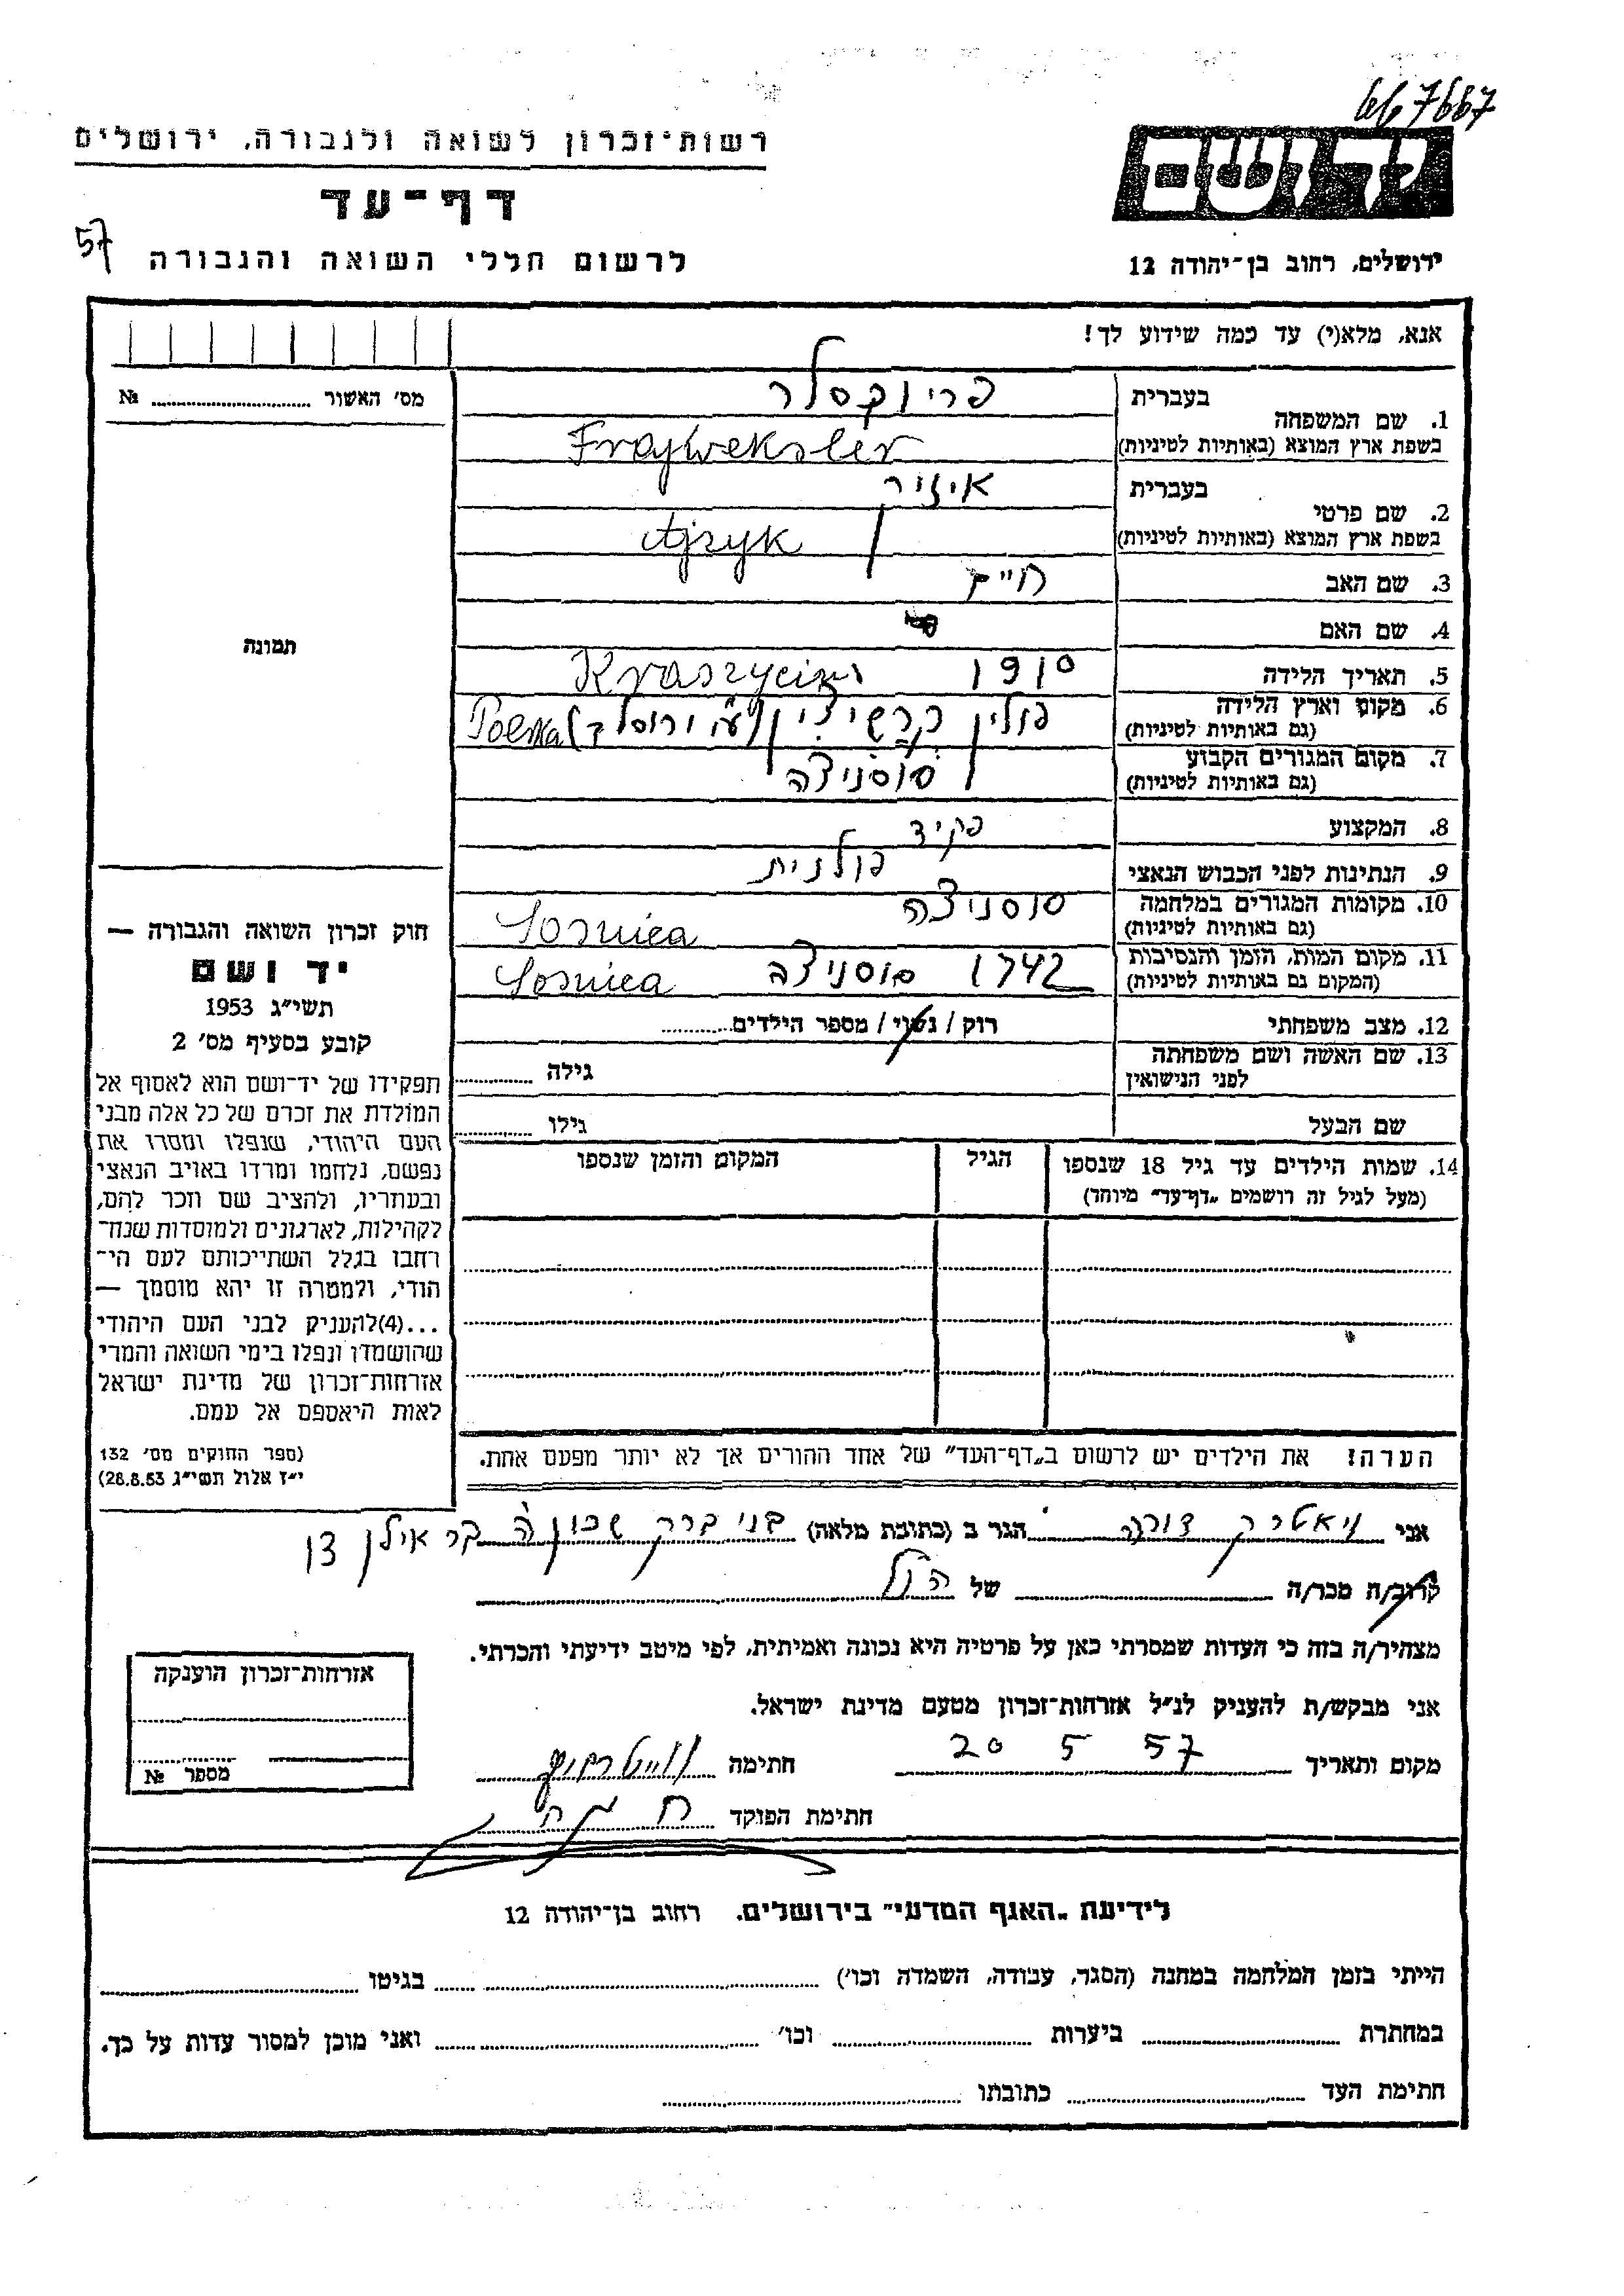 667667
רשות־זכרון לשואה ולגבורה, ירושלים
יד ושם
דף־עד
57
לרשום חללי השואה והגבורה
ירושלים, רחוב בן־יהודה 12
אנא, מלא(י) עד כמה שידוע לך!
מס' האשור № 
תמונה
1. שם המשפחה
בעברית פריוקסלר
בשפת ארץ המוצא (באותיות לטיניות) Frajweksler
2. שם פרטי
בעברית
בשפת ארץ המוצא (באותיות לטיניות) Ajzyk
3. שם האב חיים
4. שם האם
5. תאריך הלידה 1910
6. מקום וארץ הלידה
(גם באותיות לטיניות) פולין
7. מקום המגורים הקבוע סוסניצה
(גם באותיות לטיניות)
8. המקצוע פקיד
9. הנתינות לפני הכבוש הנאצי פולנית
10. מקומות המגורים במלחמה סוסניצה
(גם באותיות לטיניות) Sosnica
11. מקום המות, הזמן והנסיבות 1942 סוסניצה Sosnica
(המקום גם באותיות לטיניות)
12. מצב משפחתי רוק / נשוי / מספר הילדים
13. שם האשה ושם משפחתה גילה
לפני הנישואין
שם הבעל גילו
14. שמות הילדים עד גיל 18 שנספו הגיל המקום והזמן שנספו
(מעל לגיל זה רושמים „דף־עד" מיוחד)
הערה: את הילדים יש לרשום ב„דף־העד" של אחד ההורים אך לא יותר מפעם אחת.
חוק זכרון השואה והגבורה —
יד ושם
תשי״ג 1953
קובע בסעיף מס' 2
תפקידו של יד־ושם הוא לאסוף אל
המולדת את זכרם של כל אלה מבני
העם היהודי, שנפלו ומסרו את
נפשם, נלחמו ומרדו באויב הנאצי
ובעוזריו, ולהציב שם וזכר להם,
לקהילות, לארגונים ולמוסדות שנח־
רחבו בגלל השתייכותם לעם הי־
הודי, ולמטרה זו יהא מוסמך —
...(4)להעניק לבני העם היהודי
שהושמדו ונפלו בימי השואה והמרי
אזרחות־זכרון של מדינת ישראל
לאות היאספם אל עמם.
(ספר החוקים מס' 132
י״ז אלול תשי״ג 28.8.53)
אני הגר ב (כתובת מלאה) בני ברק שכון ה בר אילן
קרוב/ה מכר/ה של הנ״ל
מצהיר/ה בזה כי העדות שמסרתי כאן על פרטיה היא נכונה ואמיתית, לפי מיטב ידיעתי והכרתי.
אני מבקש/ת להעניק לנ״ל אזרחות־זכרון מטעם מדינת ישראל.
מקום ותאריך 20 5 57 חתימה
חתימת הפוקד
אזרחות־זכרון הוענקה
מספר №
לידיעת „האגף המדעי" בירושלים. רחוב בן־יהודה 12
הייתי בזמן המלחמה במחנה (הסגר, עבודה, השמדה וכו') בגיטו
במחתרת ביערות וכו' ואני מוכן למסור עדות על כך.
חתימת העד כתובתו